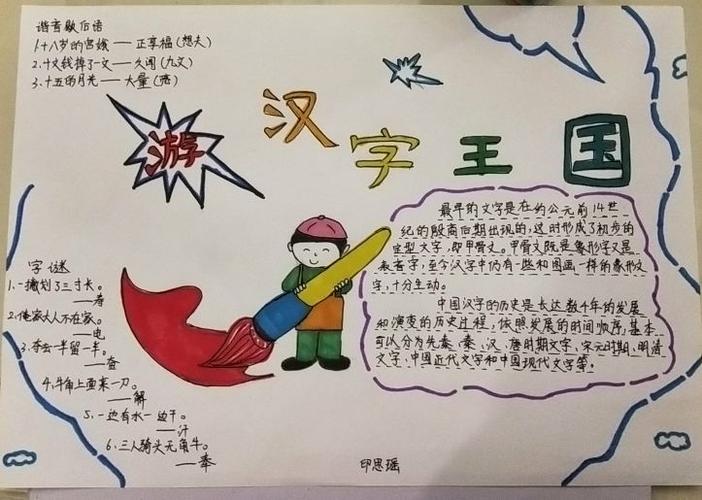 谐音歇后语
1.十八岁的宫娥——正享福(想夫)
2.十文钱掉了一文——久闻(九文)
3.十五的月光——大量(亮)
游
汉字王国
最早的文字是在约公元前14世
纪的殷商后期出现的,这时形成了初步的
定型文字,即甲骨文。甲骨文既是象形字又是
表音字,至今汉字中仍有一些和图画一样的象形文
字,十分生动。
中国汉字的历史是长达数千年的发展
和演变的历史过程,依照发展的时间顺序,基本
可以分为先秦、秦、汉、唐时期文字,宋元时期、明清
文字,中国近代文字和中国现代文字等。
字谜
1.一撇划了三寸长。
——寿
2.俺家大人不在家。
——电
3.夺去一半留一半。
——奋
4.牛角上面来一刀。
——解
5.一边有水一边干。
——汗
6.三人骑头无角牛。
——奉
印思瑶